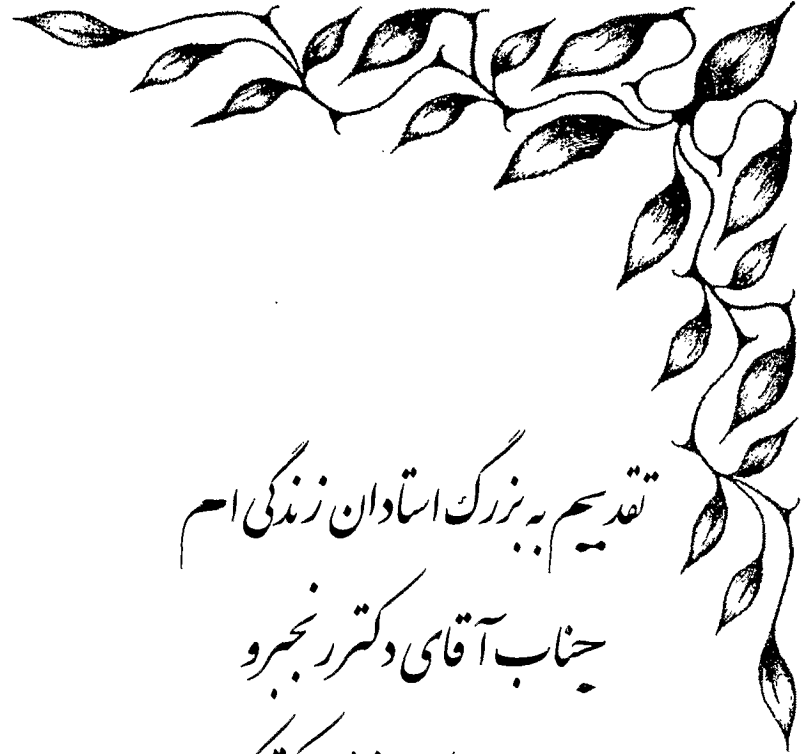 تقدیم به بزرگ استادان زندگی ام
جناب آقای دکتر رنجبر و